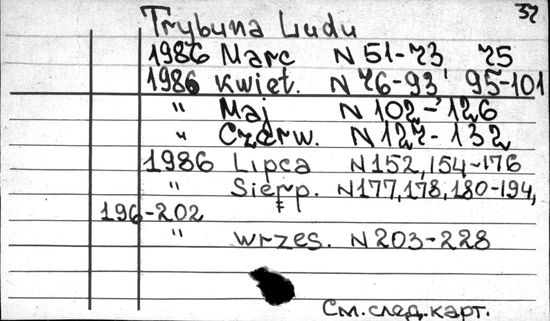 37
Trybuna Ludu
1986 Marc N 51-73 75
1986 Kwiet. N 76-93 95-101
" Maj N 102-126
" Czerw. N 127-132
1986 Lipca N152,154-176
" Sierp. N177,178,180-194,
196-202
" wrzes. N203-228
См.след.карт.